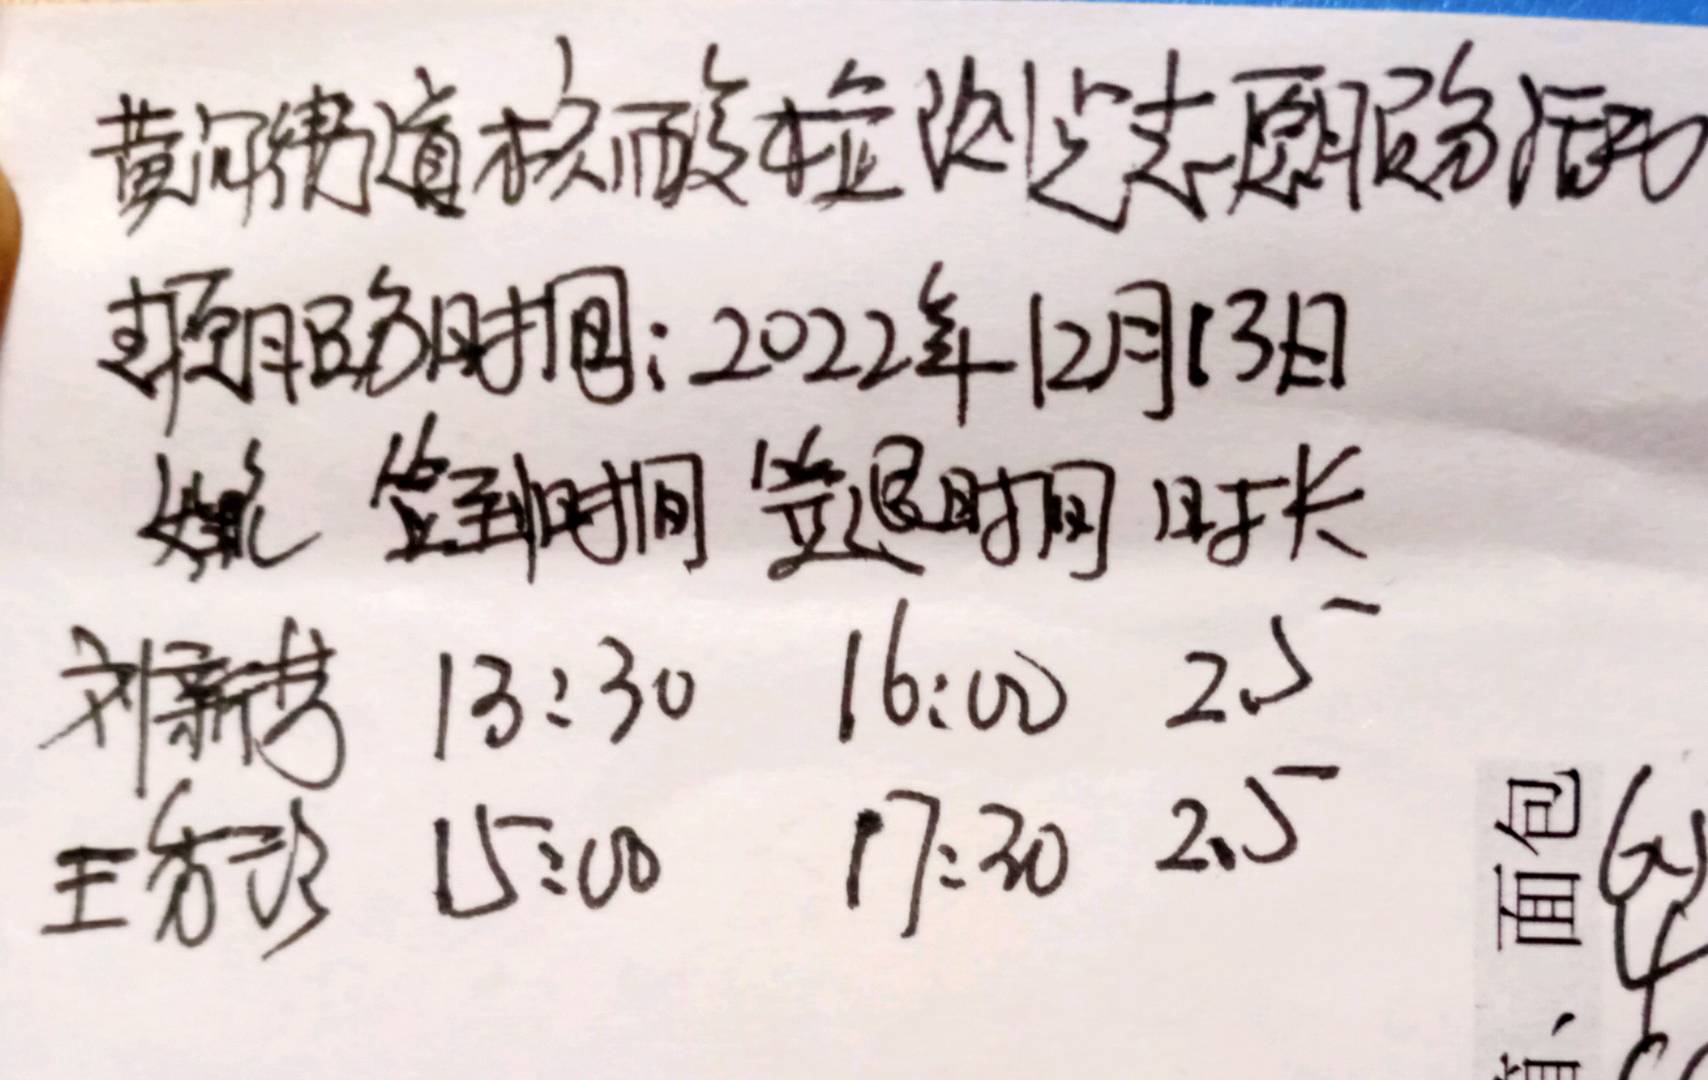 黄河街道核酸检测点志愿服务活动
志愿服务时间：2022年12月13日
姓名 签到时间 签退时间 时长
刘新芳 13:30 16:00 2.5
王芳 15:00 17:30 2.5
面包